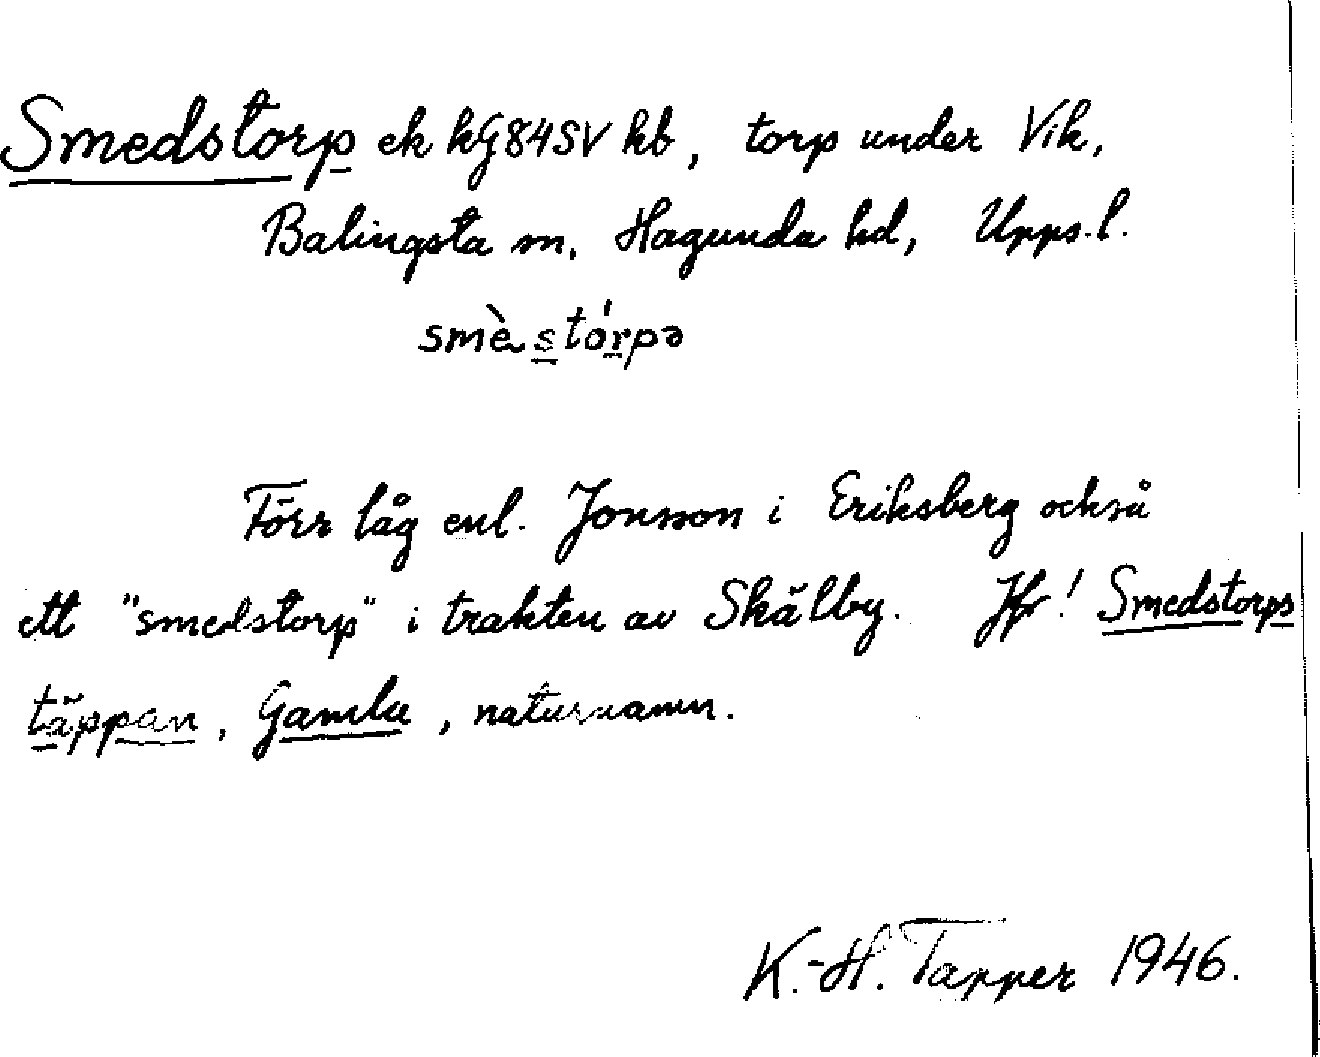 Smedstorp ek kG84SV hb, torp under Vik,
Balingsta sn, Hagunda hd, Upps.l.
smè̀stórpə
Förr låg enl. Jonsson i Eriksberg också
ett "smedstorp" i trakten av Skälby. Jfr! Smedstorps
täppan, Gamla, naturnamn.
K.-H. Tapper 1946.